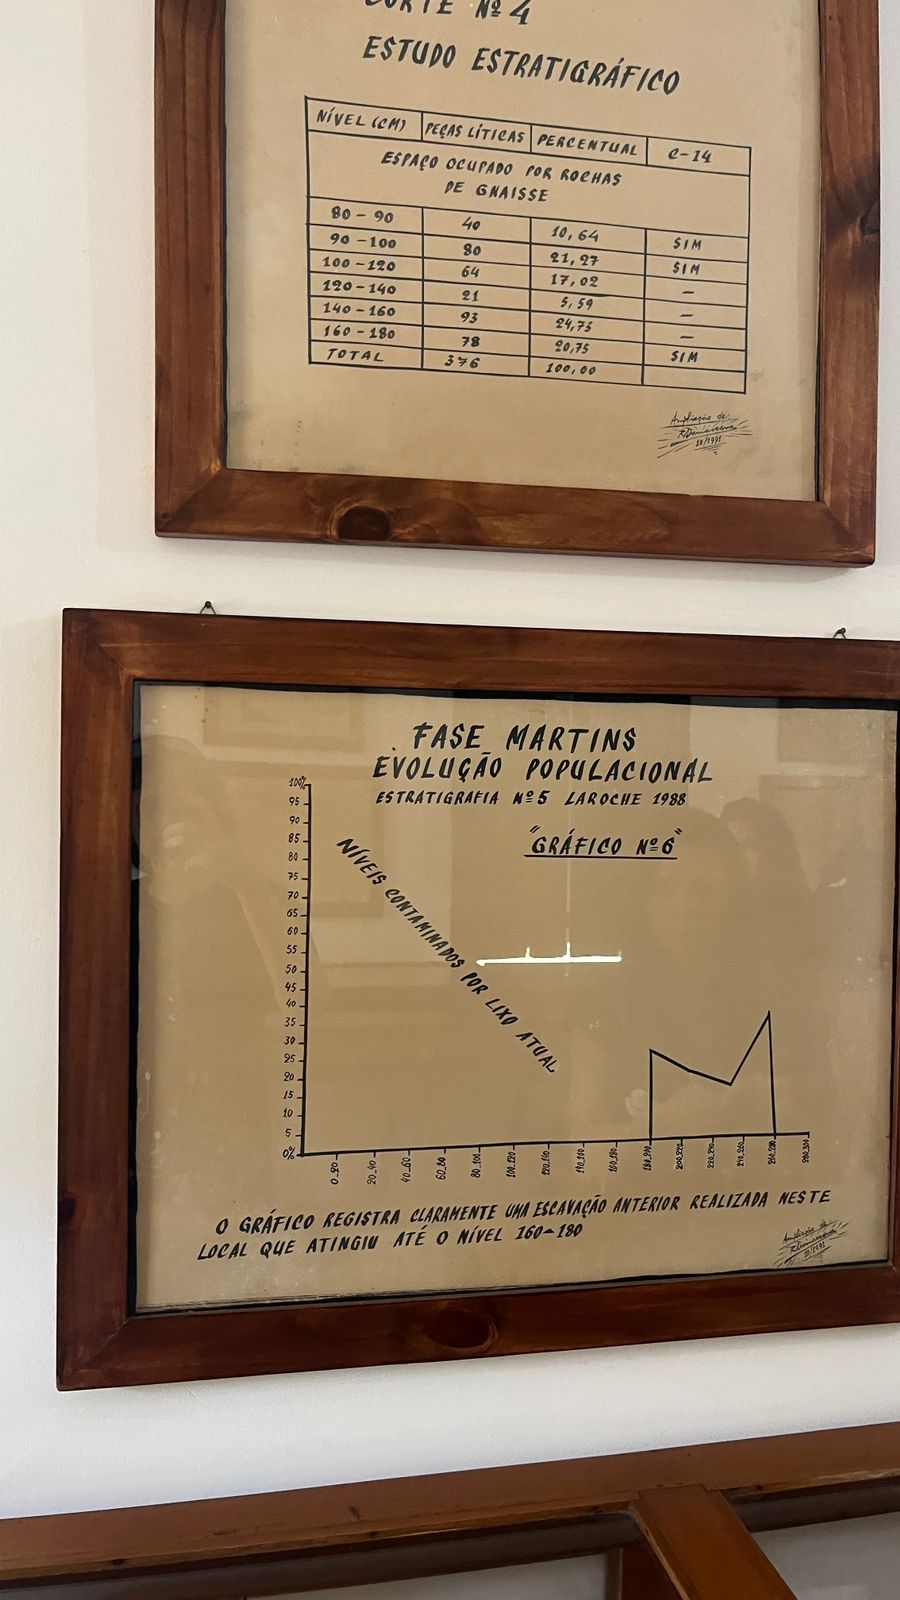 CORTE Nº 4
ESTUDO ESTRATIGRÁFICO
NÍVEL (CM) PEÇAS LÍTICAS PERCENTUAL C-14
ESPAÇO OCUPADO POR ROCHAS
DE GNAISSE
80-90 40 10,64 SIM
90-100 80 21,27 SIM
100-120 64 17,02 —
120-140 21 5,59 —
140-160 93 24,73 —
160-180 78 20,75 SIM
TOTAL 376 100,00
Ampliação de
10/1991
FASE MARTINS
EVOLUÇÃO POPULACIONAL
ESTRATIGRAFIA Nº 5 LAROCHE 1988
"GRÁFICO Nº 6"
100%
95
90
85
80
75
70
65
60
55
50
45
40
35
30
25
20
15
10
5
0%
NÍVEIS CONTAMINADOS POR LIXO ATUAL
0-20 20-40 40-60 60-80 80-100 100-120 120-140 140-160 160-180 180-200 200-220 220-240 240-260 260-280 280-300
O GRÁFICO REGISTRA CLARAMENTE UMA ESCAVAÇÃO ANTERIOR REALIZADA NESTE
LOCAL QUE ATINGIU ATÉ O NÍVEL 160-180
Ampliação de